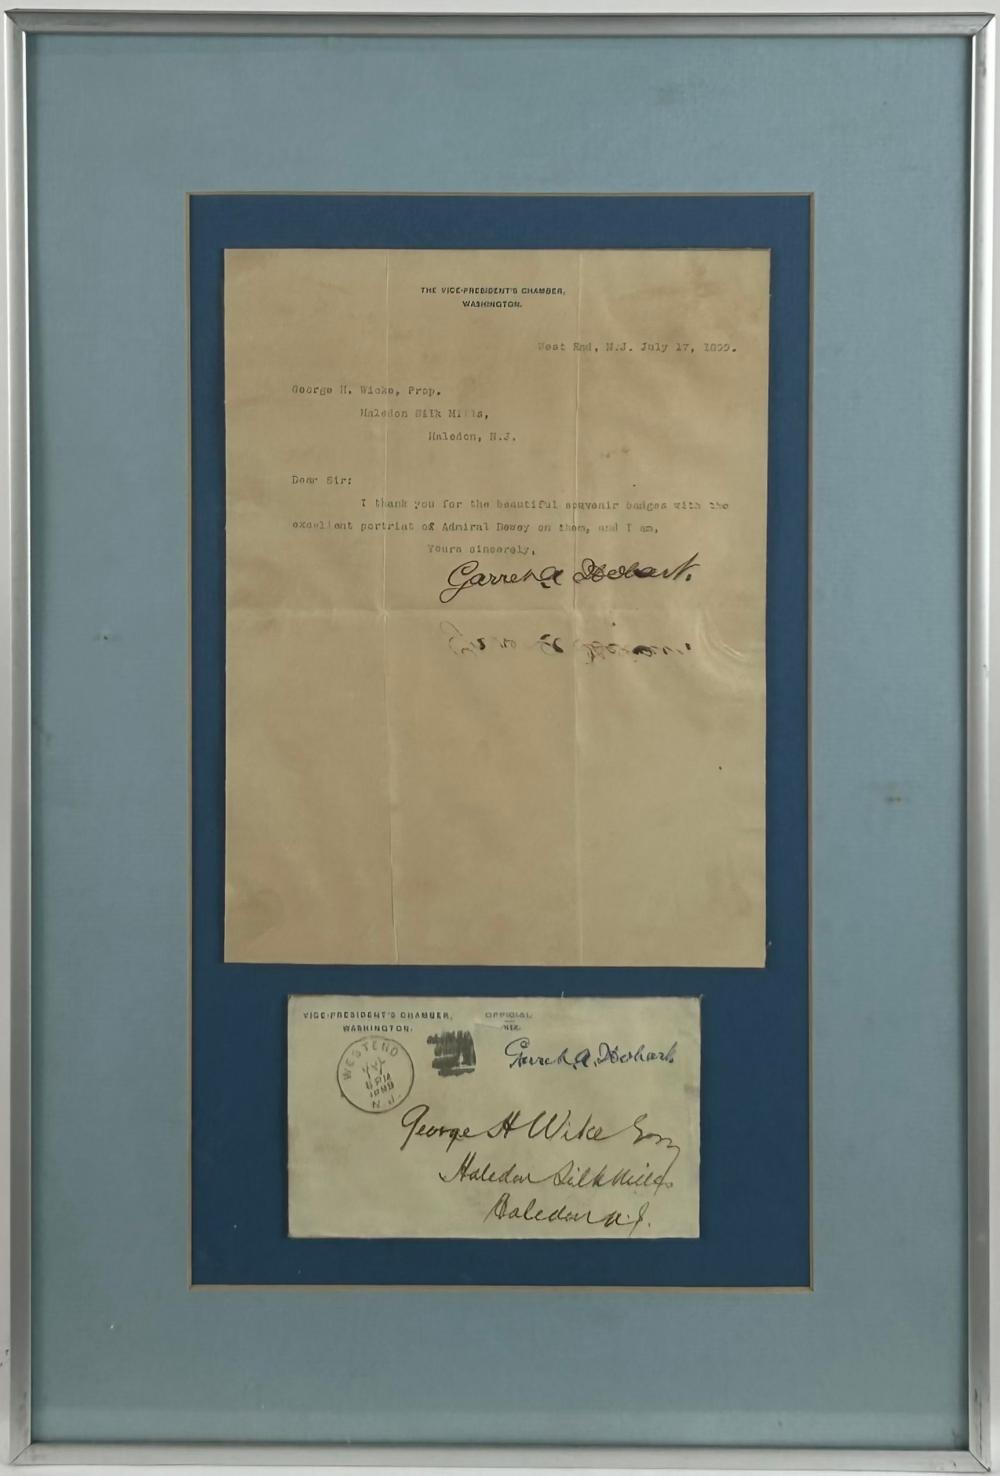 THE VICE-PRESIDENT'S CHAMBER,
WASHINGTON.
West End, N.J. July 17, 1899.
George H. Wicke, Prop.
Haledon Silk Mills,
Haledon, N.J.
Dear Sir:
I thank you for the beautiful souvenir badges with the
excellent portriat of Admiral Dewey on them, and I am,
Yours sincerely,
Garret A Hobart.
VICE-PRESIDENT'S CHAMBER,
WASHINGTON.
OFFICIAL
WEST END
JUL
1899
N.J.
Garret A. Hobart
George H Wike Esq
Haledon Silk Mills
Haledon N.J.